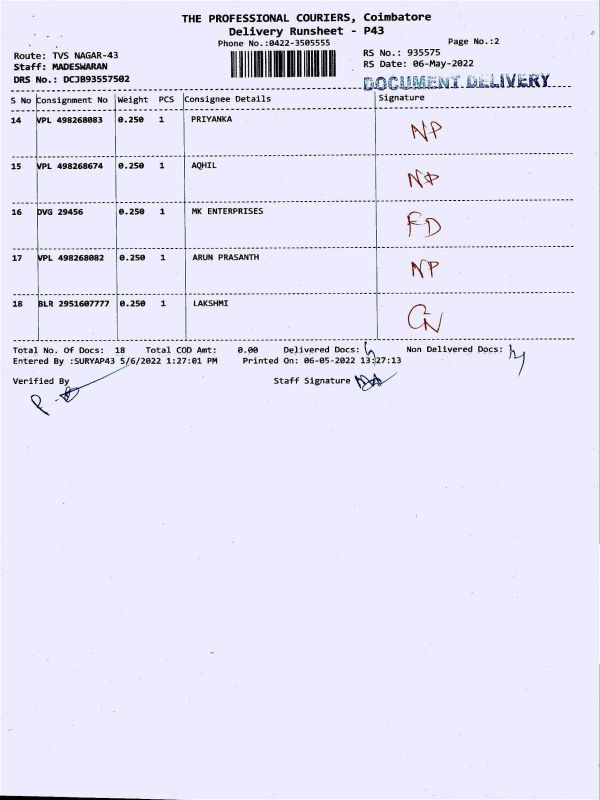 THE PROFESSIONAL COURIERS, Coimbatore
Delivery Runsheet - P43
Phone No.:0422-3505555 Page No.:2
Route: TVS NAGAR-43 RS No.: 935575
Staff: MADESWARAN RS Date: 06-May-2022
DRS No.: DCJB93557502 DOCUMENT DELIVERY
S No Consignment No Weight PCS Consignee Details Signature
14 VPL 498268083 0.250 1 PRIYANKA NP
15 VPL 498268674 0.250 1 AQHIL NP
16 DVG 29456 0.250 1 MK ENTERPRISES FD
17 VPL 498268082 0.250 1 ARUN PRASANTH NP
18 BLR 2951607777 0.250 1 LAKSHMI
Total No. Of Docs: 18 Total COD Amt: 0.00 Delivered Docs: Non Delivered Docs:
Entered By :SURYAP43 5/6/2022 1:27:01 PM Printed On: 06-05-2022 13:27:13
Verified By Staff Signature